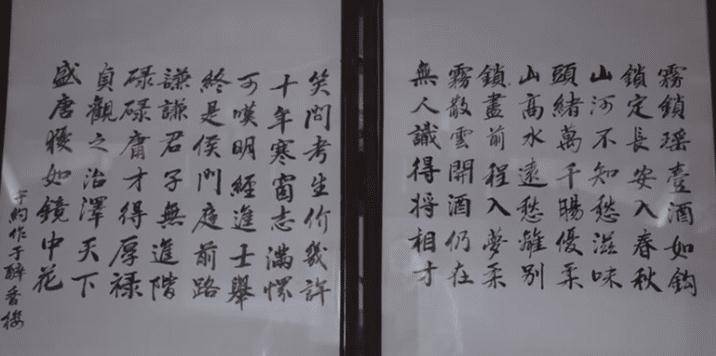 霧鎖瑶臺酒如鈎
鎖定長安入春秋
山河不知愁滋味
頭緒萬千賜優柔
山高水遠愁離別
鎖盡前程入夢柔
霧散雲開酒仍在
無人識得將相才
笑問考生價幾許
十年寒窗志滿懷
可嘆明經進士舉
終是侯門庭前路
謙謙君子無進階
碌碌庸才得厚禄
貞觀之治澤天下
盛唐暖如鏡中花
千約作于醉香樓